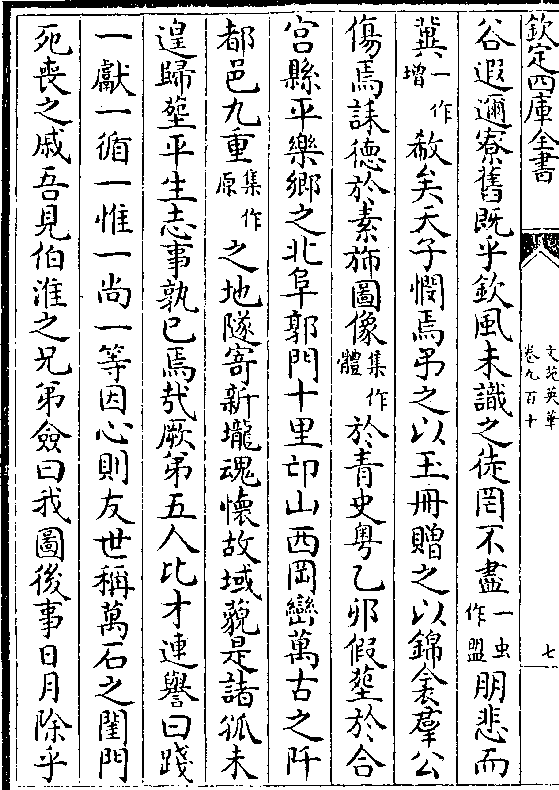 欽定四庫全書
文苑英華
卷九百十
七
谷遐邇寮舊既乎欽風未識之徒罔不盡一作䀌朋悲而
冀一作增欷矣天子憫焉弔之以玉冊贈之以錦衾羣公
傷焉誄德於素旆圖像集作體於青史粤乙夘假塟於合
宫縣平樂鄉之北阜郭門十里邙山西岡巒萬古之阡
都邑九重集作原之地隧寄新壠魂懷故域藐是諸孤未
遑歸塟平生志事孰已焉哉厥弟五人比才連譽曰踐
一獻一循一惟一尚一等因心則友世稱萬石之閨門
死喪之戚吾見伯淮之兄弟僉曰我圖後事日月除乎